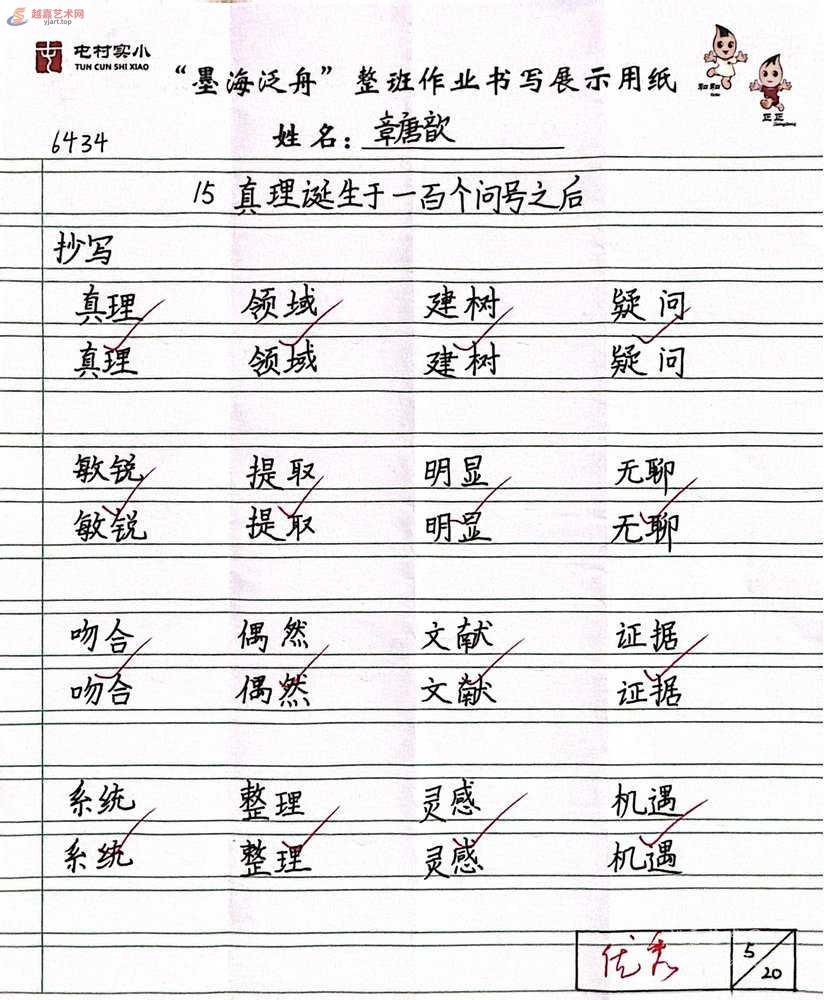 越嘉艺术网
yjart.top
屯村实小
TUN CUN SHI XIAO
“墨海泛舟”整班作业书写展示用纸
和和
正正
6434 姓名：章唐歆
15 真理诞生于一百个问号之后
抄写
真理 领域 建树 疑问
真理 领域 建树 疑问
敏锐 提取 明显 无聊
敏锐 提取 明显 无聊
吻合 偶然 文献 证据
吻合 偶然 文献 证据
系统 整理 灵感 机遇
系统 整理 灵感 机遇
优秀 5/20